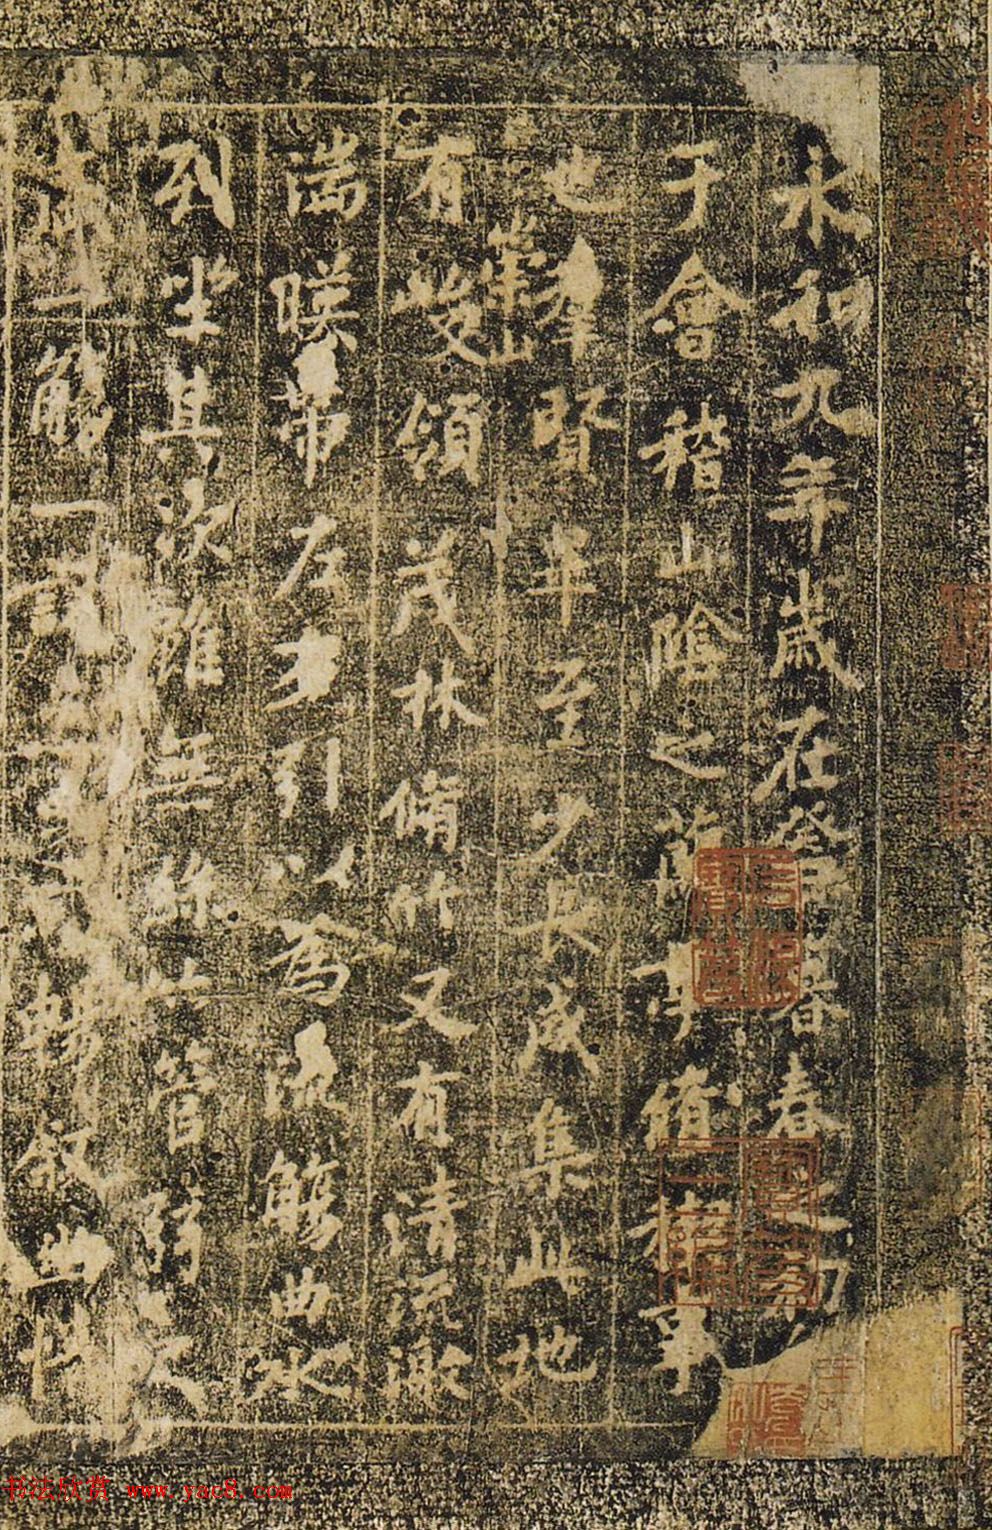 永和九年歲在癸丑暮春之初
于會稽山陰之蘭亭脩禊事
也羣賢畢至少長咸集此地
崇山
有峻領茂林脩竹又有清流激
湍暎帶左右引以為流觴曲水
列坐其次雖無絲竹管弦之
盛一觴一詠亦足以暢敘幽情
书法欣赏 www.yac8.com